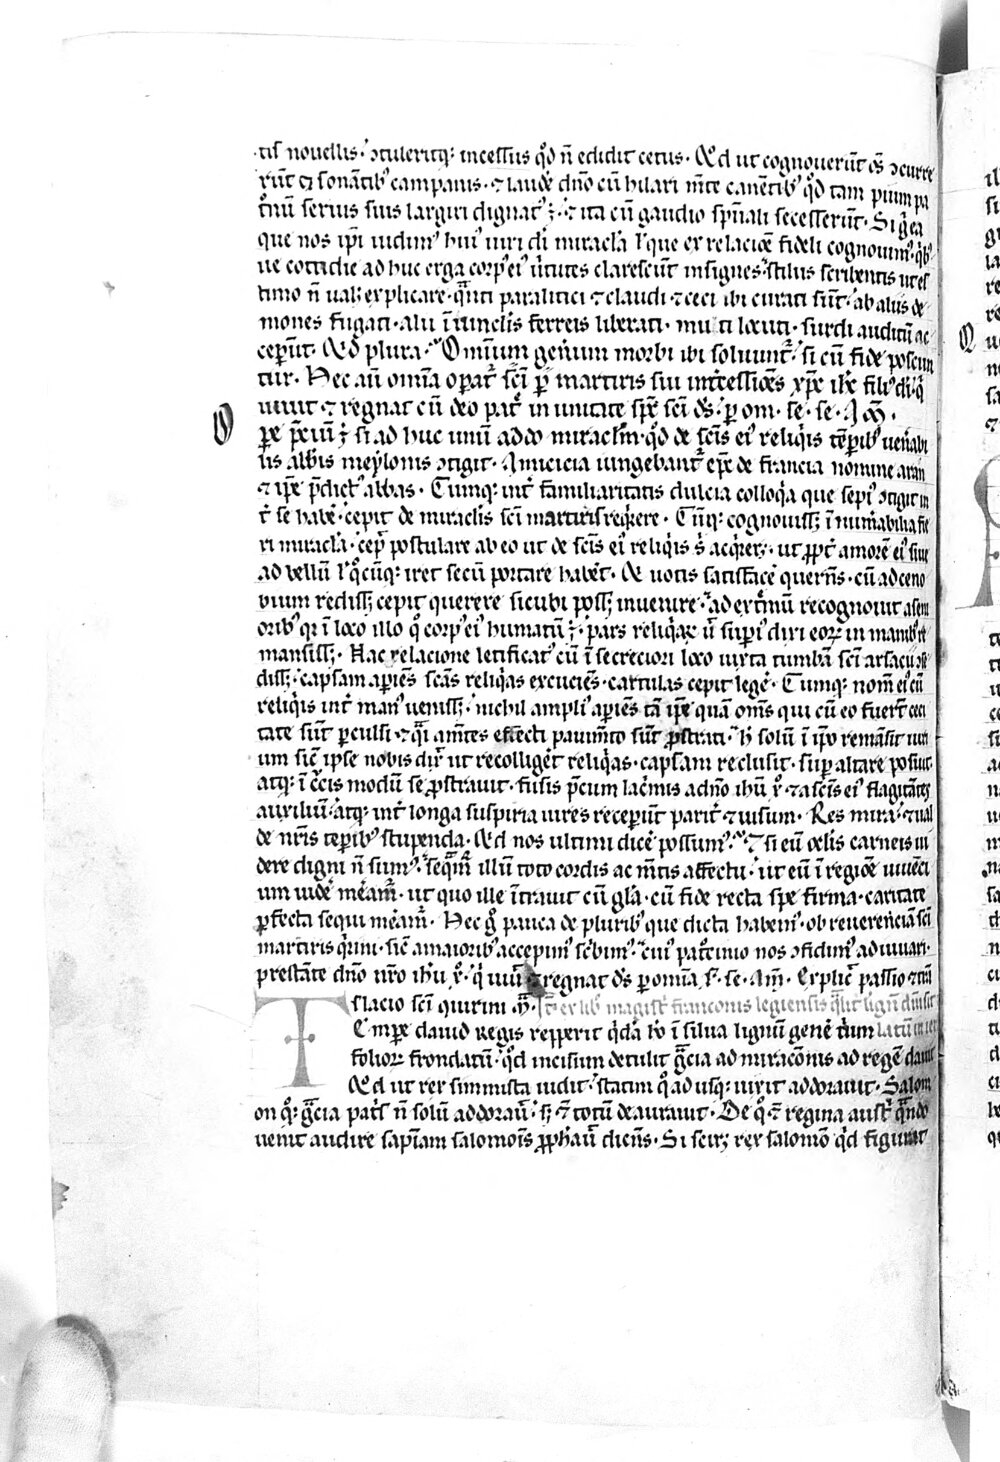 tis nouellis · ↄtuleritq; incessus qd̓ n̄ edidit cetus · Ad ut cognouer̄t oс̄ ↄcurre
rūt c̄ sonātib; campanis · ⁊ laudē dn̄o cū hilari m̄te canētib; qd̓ tam pium pa
tronū serius suis largiri dignat᷒ ē · ⁊ ita cū gaudio sp̄uali secesserūt · Si q̓ ea
que nos ip̄i uidim᷒ hui᷒ uiri dī miracl̄a l̓ que ex relacioē fideli cognouim᷒ · qb᷒
ue cottidie ad huc erga corp᷒ ei᷒ u̓tutes clarescūt insignes · stilus scribentis ut es
timo n̄ ual; explicare · qͣnti paralitici ⁊ claudi ⁊ ceci ibi curati sūt · ab aliis de
mones fugati · alii ī uinclis ferreis liberati · muti locuti · surdi auditū ac
ceperūt · Ad̓ plura · Omnium genium morbi ibi soluunt᷑ · si cū fide poscun
tur · Hec aū omīa opat᷑ sc̄i ꝑ martiris sui int̓cessiōēs xp̄c ih̄c filī dī · q̓
uiuit ⁊ regnat cū deo pat̓ in unitate sp̄c sc̄i ds̄ · ꝑ om · se · se · Am̄ ·
O pe p̄ciū ē̓ si ad huc unū addo miracl̄m · qd̓ de sc̄is ei᷒ reliq̓is tēꝑib᷒ uen̓abi
lis abb̄is meylonis ↄtigit · Amicicia iungebant᷑ ep̄c de francia nomine aran
⁊ ip̄e p̄dict᷒ abbas · Cumq; int̓ familiaritatis dulcia colloq̓a que sepi᷒ ↄtigit in
t̓ se habe̓ · cepit de miracl̄is sc̄i martiris reqrere · Cūq; cognouiss; īnum̓abilia fie
ri miracl̄a · cep̄ postulare ab eo ut de sc̄is ei᷒ reliq̓is s̓ acq̓rer; · ut ꝓpt̓ amorē ei᷒ siue
ad bellū l̓ q̓cūq; iret secū portare habe̓t · At uotis satisface̓ quer̄ns · cū ad ceno
bium rediss; cepit querere sicubi poss; inuenire · ad ext̓mū recognouit a sen
orib᷒ qꝛ ī loco illo q̓ corp᷒ ei᷒ humatū ē̓ · pars reliq̓aꝝ u̓ sup̓i᷒ diri eoꝝ in manib᷒ re
mansiss; · Hac relacione letificat᷒ cū ī secreciori loco iuxta tumbā sc̄i
diss; · capsam aꝑiēs sc̄as reliq̓as excuciēs · cartulas cepit lege̓ · Cumq; nom̄ ei᷒ cū
reliq̓is int̓ man᷒ ueniss; · nichil ampli᷒ aꝑiēs tā ip̄e quā om̄s qui cū eo fuer̄t ceci
tate sūt ꝑculsi · ⁊ qͣi am̄tes effecti pauim̄to sūt ꝓstrati · h̓ solū ī ip̄o remāsit uiui
um sic̄ ipse nobis dix̄ ut recollige̓t reliq̓as · capsam reclusit · suꝑ altare posuit
atq; ī c̄cis modū se ꝓstrauit · fusis p̄cum lac̓mis ad n̄o ih̄u x̄ · ⁊ a sc̄is ei᷒ flagitātes
auxiliū · atq; int̓ longa suspiria uires receꝑunt parit̓ ⁊ uisum · Res mira · ⁊ ual
de nr̄is tēꝑib᷒ stupenda · Ad nos ultimi dice̓ possum᷒ · ⁊ si eū oclis carneis ui
dere digni n̄ sum᷒ · seqͣm᷑ illum toto cordis ac m̄tis affectu · ut eū ī regiōe uiuēci
um uide̓ me̓am᷑ · ut quo ille ītrauit cū gl̄a · cū fide recta spe firma · caritate
ꝑfecta sequi me̓am᷑ · Hec g̓ pauca de plurib᷒ que dicta habem᷒ · ob reuerenciā sc̄i
martiris q̓rini · sic̄ a maiorib᷒ accepim᷒ sc̓bim᷒ · cui᷒ pat̓cinio nos ↄfidim᷒ adiuuari ·
prestāte dn̄o nr̄o ih̄u x̄ · q̓ uiuit ⁊ regnat ds̄ ꝑ omīa s̄ · se · Am̄ · Explic̄ passio ⁊ trās
lacio sc̄i quirini m̄ · It̄ ex lib᷒ magist̓ franconis legiensis qͣlit̓ lignū dm̄sit
T Empe dauid regis repperit q̓dā ho̓ ī silua lignū gene̓ trium
folioꝝ frondatū · qd̓ incisum detulit gͣcia admiraciōnis ad regē dauit
Ad ut rex simmista uidit · statim q̓ adusq; uixit adorauit · Salom
on q; gͣcia pat̓s n̄ solū addorau̓ · s; ⁊ totū deaurauit · De q̓ ⁊ regina aust̓ qͣndo
uenit audire sapiam salomōis ꝓphau̓ dicēs · Si scir; rex salomō qd̓ figurat